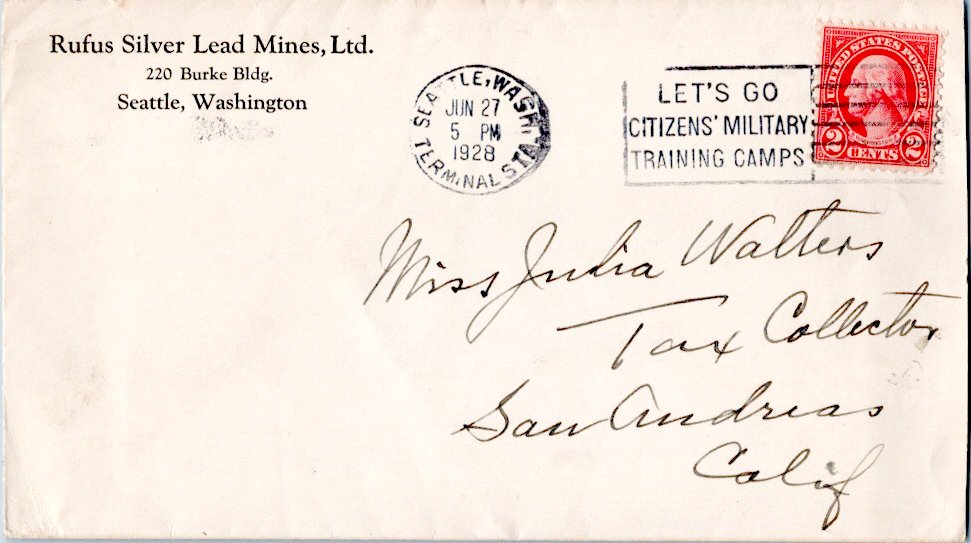 Rufus Silver Lead Mines, Ltd.
220 Burke Bldg.
Seattle, Washington
SEATTLE, WASH.
JUN 27
5 PM
1928
TERMINAL STA.
LET'S GO
CITIZENS' MILITARY
TRAINING CAMPS
UNITED STATES POSTAGE
2 CENTS 2
Miss Julia Walters
Tax Collector
San Andreas
Calif